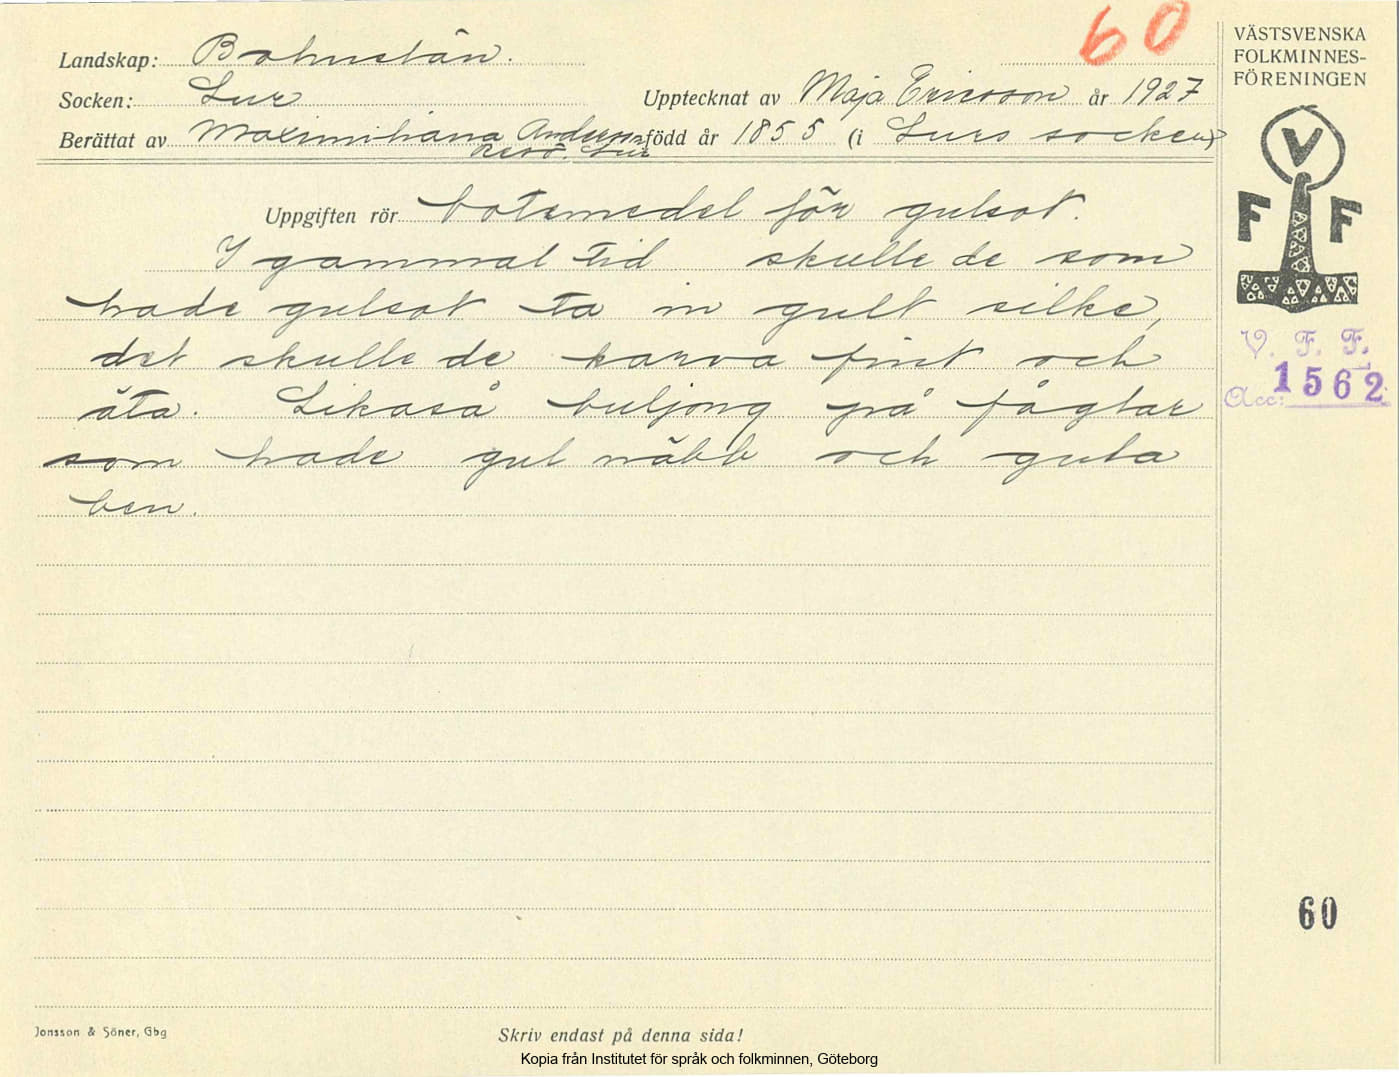 60
Landskap: Bohuslän.
Socken: Lur
Upptecknat av Maja Ericsson år 1927
Berättat av Maximiliana Andersson född år 1855 (i Lurs socken)
Resö. Lur
Uppgiften rör botemedel för gulsot.
I gammal tid skulle de som
hade gulsot ta in gult silke,
det skulle de karva fint och
äta. Likaså buljong på fåglar
som hade gul näbb och gula
ben.
VÄSTSVENSKA
FOLKMINNES-
FÖRENINGEN
V
F F
V. F. F.
Acc: 1562
60
Jonsson & Söner, Gbg
Skriv endast på denna sida!
Kopia från Institutet för språk och folkminnen, Göteborg